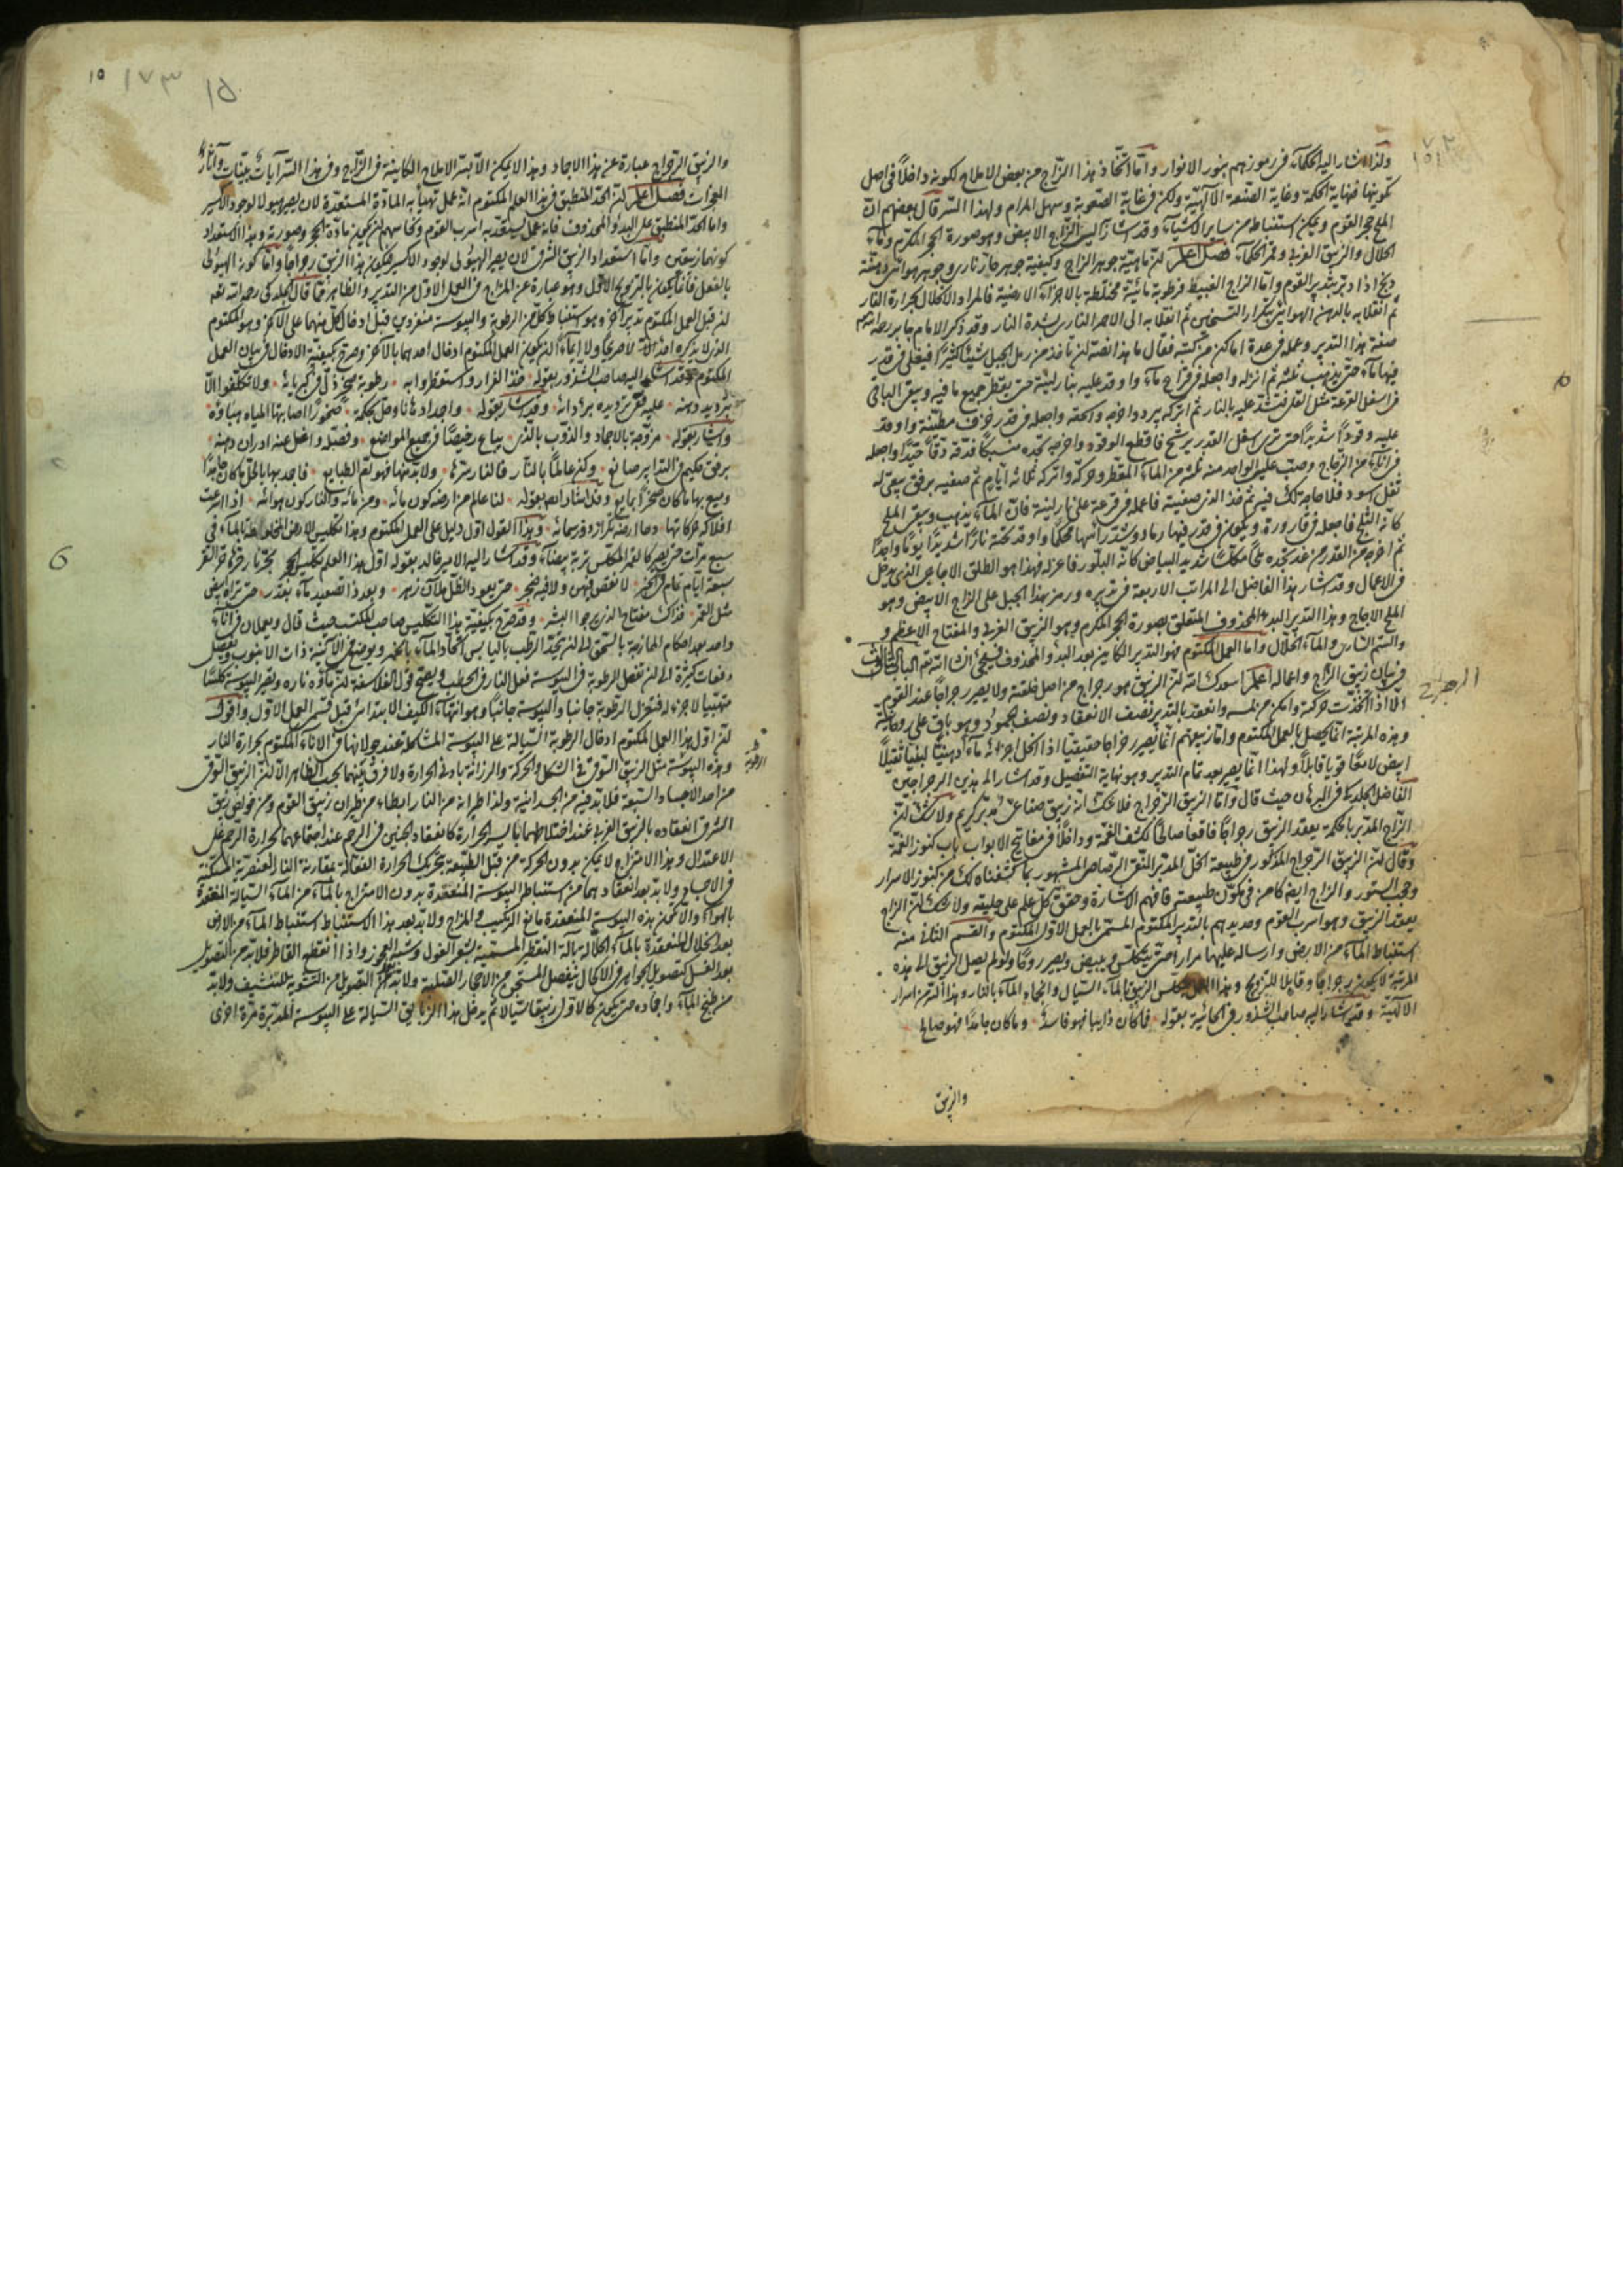 ولذا اشار اليه الحكماء فى رموزهم بنور الانوار واما اتخاذ هذا الزاج من بعض الاملاح لكونه داخلاً فى اصل
تكونها فنهاية الحكمة وغاية الصنعة الآلهية ولكن فى غاية الصعوبة وسهل المرام ولهذا السر قال بعضهم ان
الملح حجر القوم ويمكن استنباطه من ساير الاشياء وقد اشار الى الزاج الابيض وهو صورة الحجر المكرم وماء
الحلال والزيبق الغربى وقمر الحكماء فصل اعلم ان ماهية جوهر الزاج وكيفية جوهر حار نارى وجوهر هوائى دهنية
القوم واما الزاج الغبيط فرطوبة مائية مختلطة بالاجزاء الارضية فالمراد الانحلال بحرارة النار
ثم انقلابه بالدهن الهوائى بتكرار التسخين ثم انقلابه الى الاحمر النارى بشدة النار وقد ذكر الامام جابر رحمه الله
صفة هذا التدبير وعمله فى عدة اماكن من كتبه فقال ما هذا نصه ان تأخذ من رمل الجبل شيئا كثيرا فيغلى فى قدر
فيها ماء حتى يذهب ثلثه ثم انزله واجعله فى قراح ماء واوقد عليه بنار لينة حتى يقطر جميع ما فيه ويبقى الباقى
فى اسفل القرعة مثل القلى فشد عليه بالنار ثم اتركه يبرد واخرجه واسحقه واجعله فى قدر خزف مطينة واوقد
عليه وقودا شديدا حتى ترى اسفل القدر يرشح فاقطع الوقود واخرجه تجده منسبكا فدقه دقا جيدا واجعله
فى اناء من الزجاج وصب عليه الواحد منه ثلثه من الماء المقطر وحركه واتركه ثلاثة ايام ثم صفيه برفق يبقى له
ثفل اسود فلا حاجة لك فيه ثم خذ الذى صفيته فاعمله فى قرعة على نار لينة فان الماء يذهب ويبقى الملح
كانه الثلج فاجعله فى قارورة ويكون فى قدر فيها رماد وشد راسها محكما واوقد تحته نارا شديدا يوما واحدا
ثم اخرجه من القدر من غد تجده ملحا مكلسا شديد البياض كانه البلور فاعزله فهذا هو الطلق الاجاجى الذى يدخل
فى الاعمال وقد اشار هذا الفاضل الى المراتب الاربعة فى تدبيره ورمز بهذا الجبل على الزاج الابيض وهو
الملح الاجاج وهذا التدبير البدء المحذوف المتعلق بصورة الحجر المكرم وهو الزيبق الغربى والمفتاح الاعظم و
والسم النارى والماء الحلال واما العمل المكتوم فهو التدبير الكاين بعد البدء والمحذوف فسيجئ ان شاء الله تعم الباب الثالث
فى بيان زيبق الزاج واعماله اعلم اسعدك الله ان الزيبق هو رجراج من اصل خلقته ولا يصير رجراجا عند القوم
الا اذا اخذت حركته وامكن من لمسه وانعقد بالتدبير نصف الانعقاد ونصف الجمود وهو باق على روحانيته
وهذه المرتبة انما يحصل بالعمل المكتوم واما زيبقهم انما يصير رجراجا حقيقيا اذا انحل اجزائه ماء دهنيا بلغيا ثقيلاً
ابيض لامعا قويا قابلاً ولهذا انما يصير بعد تمام التدبير وهو نهاية التفصيل وقد اشار الى هذين الرجراجين
الفاضل الجلدكى فى البرهان حيث قال واما الزيبق الرجراج فلا شك انه زيبق صناعى مدبر كريم ولا شك ان
الزاج المدبر بالحكمة يعقد الزيبق رجراجا فاقعا صالحا لكشف الغمة وداخلا فى مفاتيح الابواب باب كنوز الغمة
وقال ان الزيبق الرجراج المذكور فى طبيعة الخل المدبر النقى الرصاص المشهور بما كشفناه لك من كنوز الاسرار
وحجب الستور والزاج ايضا كامن فى مكون طبيعته فافهم الاشارة وحقق كل علم على جليته ولا شك ان الزاج
يعقد الزيبق وهو اسرب القوم وحديدهم بالتدبير المكتوم المسمى بالعمل الاول المكتوم والقسم الثانى منه
استنباط الماء من الارض وارساله عليها مرارا حتى يتكلس ويبيض ويصير روحا ولو لم يصل الزيبق الى هذه
المرتبة لا يكون رجراجا وقابلا للتزويج وهذا الزيبق بالماء السيال وانجماد الماء بالنار وهذا السر من اسرار
الآلهية وقد اشار اليه صاحب الشذور فى الحائية بقوله فما كان ذايبا فهو فاسد وما كان جامدا فهو صالح
والزيبق
الرجراج
١٧٣
١٥
والزيبق الرجراج عبارة عن هذا الانجماد وهذا لا يمكن الا بسر الاملاح الكاينة فى الزاج وفى هذا السر آيات بينات وآثار
المعجزات فصل اعلم ان الحد المنطبق فى هذا العلم المكتوم انه عمل تهيأ به المادة المستعدة لان يصير هيولا لوجود الاكسير
واما الحد المنطبق على البدء والمحذوف فانه عمل يستعد به اسرب القوم ونحاسهم لان يكون مادة الحجر وصورته وهذا الاستعداد
كونهما زيبقين واما استعداد الزيبق الشرقى لان يصير الهيولى لوجود الاكسير فيكون هذا الزيبق رجراجا واما كونه الهيولى
بالفعل فانما يكون بالتزويج الاول وهو عبارة عن المزاج فى العمل الاول من التدبير والظاهر مما قال الجلدكى رحمه الله تعم
ان قبل العمل المكتوم تدبير آخر وهو استنباط كل من الرطوبة واليبوسة منفردين قبل ادخال كل منهما على الآخر وهو المكتوم
الذى لا يذكره احد الا لا صريحا ولا ايماء ان يكون العمل المكتوم ادخال احدهما بالآخر وصرح بكيفية الادخال فى بيان العمل
المكتوم وقد اشار اليه صاحب الشذور بقوله فخذ الفرار واستقطروا به رطوبة شيخ ذل فى كبريائه ولا تكلفوا الا
بترديد دهنه عليه ففى ترديده برء دائه وقد اشار بقوله واجساد مانا وحل بحكمة صخورا اصابها المياه هباؤه
واشار بقوله مزوجة بالاجساد والذوب بالذى يباع رخيصا فى جميع المواضع وفصل واغسل عنه ادران دهنه
برفق حكيم فى التدابير صانع وكن عالما بالنار فالنار سرها ولا بد منها فهو تعم الطبايع فاجمد بها بالحل ما كان جامدا
وميع بها ما كان صخرا بمايع وقد اشار ايضا بقوله لنا عالم من ارضه كون مائه ومن مائه والنار كون هوائه اذا اسرعت
افلاكه حركاتها دحا ارضه تكراره فى سمائه وهذا القول اول دليل على العمل المكتوم وهذا تكليس الارض المخالطة بالماء فى
سبع مرات حتى يصير كالقمر المكلس تربة بيضاء وقد اشار اليه الامير خالد بقوله اول هذا العلم تكليس الحجر بحر نار فى حر القمر
سبعة ايام تمام فى الخبر لا نقص فيهن ولا فيه ضجر حتى يعود الظل هلالا زهر وبعد ذا تصعيد ماء بقدر حتى تراه ابيض
مثل القمر فذاك مفتاح الذى يرجوا البشر وقد صرح بكيفية هذا التكليس صاحب المكتسب حيث قال ويجعلان فى اناء
واحد بعد احكام المازجة بالسحق الى ان يتحد الرطب باليابس اتحاد الماء بالخمر ويوضع فى الآنية ذات الانبوب ويفصل
دفعات كثيرة الى ان تفعل الرطوبة فى اليبوسة فعل النار فى الحطب ويصح قول الفلاسفة ان ماؤه ناره وتصير اليبوسة كلسا
متهبيا لا جزء له فتعزل الرطوبة جانبا واليبوسة جانبا وهو انتهاء الكيف الابتدائى قبل قسم العمل الاول واقول
ان اول هذا العمل المكتوم ادخال الرطوبة السيالة على اليبوسة المشكلة عند جولانها فى الاناء المكتوم بحرارة النار
وهذه اليبوسة مثل الزيبق السوقى فى الشكل والحركة والرزانة بادنى الحرارة ولا فرق بينهما بحسب الظاهر الا ان الزيبق السوقى
من احد الاجساد السبعة فلا بد فيه من الجسدانية ولذا طيرانه من النار ابطاء من طيران زيبق القوم ومن خواص زيبق
الشرقى انعقاده بالزيبق الغربى عند اختلاطهما باليسير الحرارة كانعقاد الجنين فى الرحم عند اجتماعهما لحرارة الرحم على
الاعتدال وهذا الامتزاج لا يمكن بدون الحركة من قبل الطبيعة بتحريك الحرارة الفعالة بمقارنة النار العنصرية المسكنة
فى الاجساد ولا بد بعد انعقادهما من استنباط اليبوسة المنعقدة بدون الامتزاج بالماء من الماء السيالة المنعقدة
بالهواء والا تكون هذه اليبوسة المنعقدة مانع التركيب والمزاج ولا بد بعد هذا الاستنباط استنباط الماء من الارض
بعد انحلال المنعقدة بالماء الحلال بآلة التقطير المسمية بشعر الغول وشيبة العجوز واذا انقطع القاطر فلا بد من التصويل
بعد الغسل كتصويل الجواهر فى الاكحال بفصل المستجن من الاحجار الصلبية ولا بد بعد التصويل من التشوية للتنشيف ولا بد
من طبخ الماء وانجاده حتى يكون كالاول زيبقا سيالا ثم يدخل هذا الزيبق السيالة على اليبوسة المدبرة مرة اخرى
الرطوبة